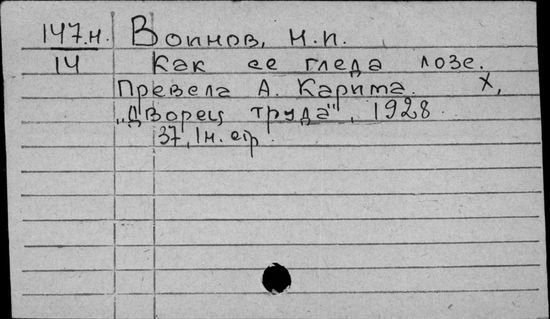 147.н. Воинов, н.п.
14 Как се гледа лозе.
Превела А. Карима. Х,
„Дворец труда", 1928.
37, 1н. стр.